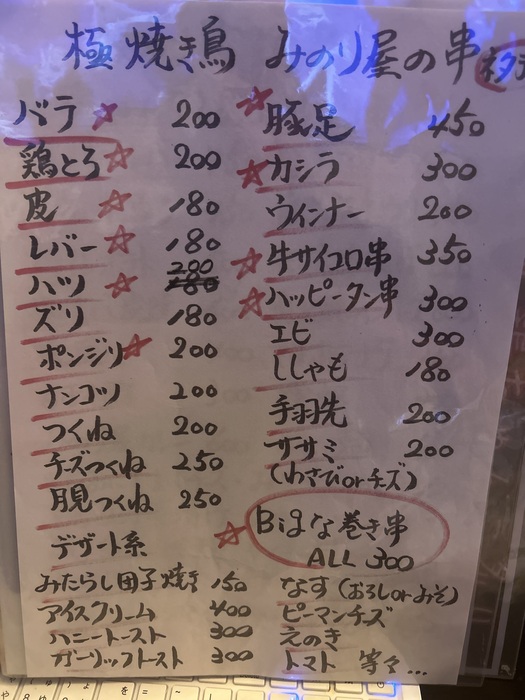 極 焼き鳥 みのり屋の串
バラ ☆ 200
鶏とろ ☆ 200
皮 ☆ 180
レバー ☆ 180
ハツ ☆ 200
ズリ 180
ボンジリ ☆ 200
ナンコツ 200
つくね 200
チーズつくね 250
月見つくね 250
デザート系
みたらし団子焼き 150
アイスクリーム 400
ハニートースト 300
ガーリックトースト 300
☆ 豚足 450
☆ カシラ 300
ウィンナー 200
☆ 牛サイコロ串 350
☆ ハッピータン串 300
エビ 300
ししゃも 180
手羽先 200
ササミ 200
(わさびorチーズ)
☆ Bigな巻き串
ALL 300
なす (おろしorみそ)
ピーマンチーズ
えのき
トマト 等々...